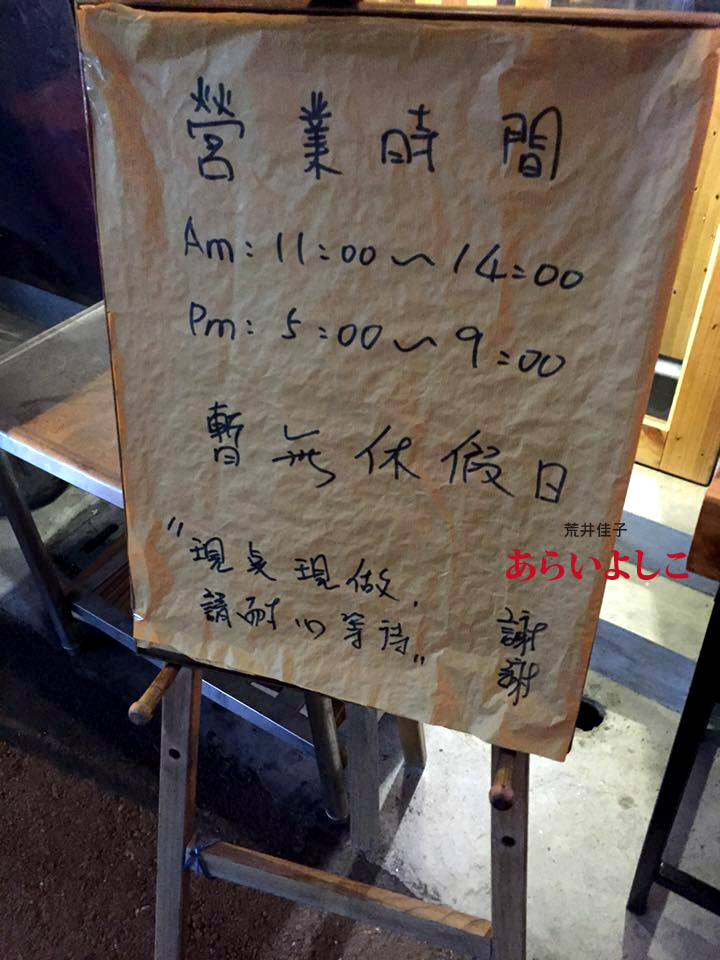 營業時間
Am: 11:00~14:00
Pm: 5:00~9:00
暫無休假日
"現點現做,
請耐心等待"
謝謝
荒井佳子
あらいよしこ